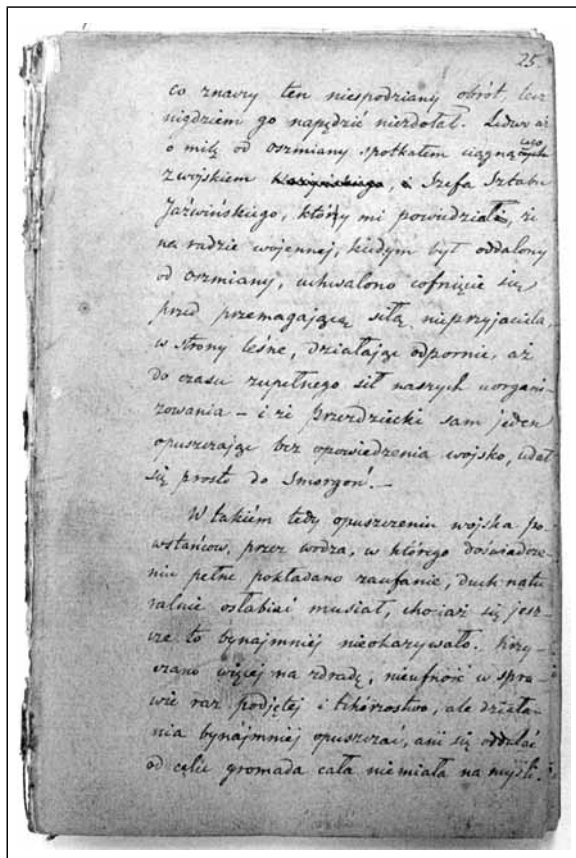 25.
co znawzy ten niespodziany obrót, lecz
nigdziem go napędzić niezdołał. Ledwo aż
o milę od Oszmiany spotkałem ciągnącego
z wojskiem Szefa Sztabu
Jaźwińskiego, który mi powiedział, że
na radzie wojennej, kiedym był oddalony
od Oszmiany, uchwalono cofnięcie się
przed przemagającą siłą nieprzyjaciela,
w strony leśne, działając odpornie, aż
do czasu zupełnego sił naszych uorgani-
zowania – i że Przezdziecki sam jeden
opuszczając bez opowiedzenia wojsko, udał
się prosto do Smorgoń. –
W takiém tedy opuszczeniu wojska po-
wstańców, przez wodza, w którego doświadcze-
niu pełne pokładano zaufanie, duch natu-
ralnie osłabiać musiał, chociaż się jesz-
cze to bynajmniéj nieokazywało. Krzy-
czano więcéj na zdradę, nieufność w spra-
wie raz podjętej i tchórzostwo, ale działa-
nia bynájmniéj opuszczać, ani się oddalać
od celu gromada cała niemiała na myśli.